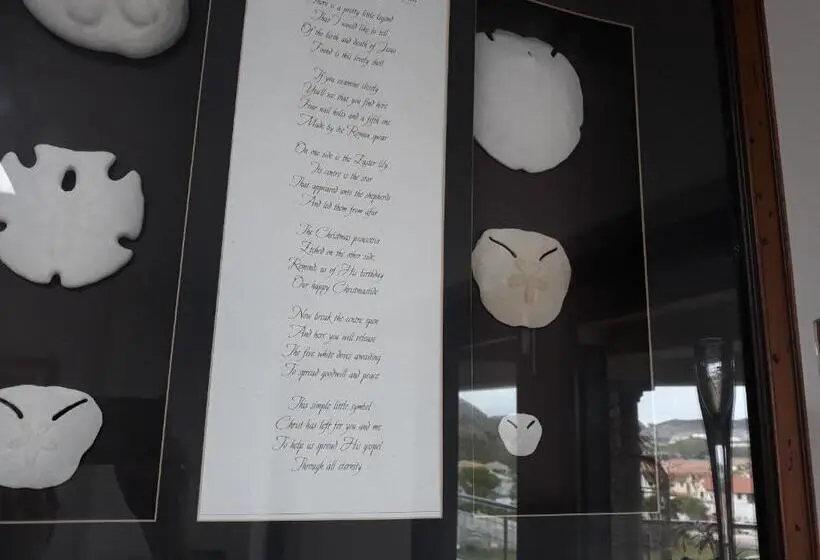 There is a pretty little legend
That I would like to tell
Of the birth and death of Jesus
Found in this lovely shell
If you examine closely
You'll see that you find here
Four nail holes and a fifth one
Made by the Roman spear
On one side is the Easter lily
Its centre is the star
That appeared unto the shepherds
And led them from afar
The Christmas poinsettia
Etched on the other side
Reminds us of His birthday
Our happy Christmastide
Now break the centre open
And here you will release
The five white doves awaiting
To spread goodwill and peace
This simple little symbol
Christ has left for you and me
To help us spread His gospel
Through all eternity